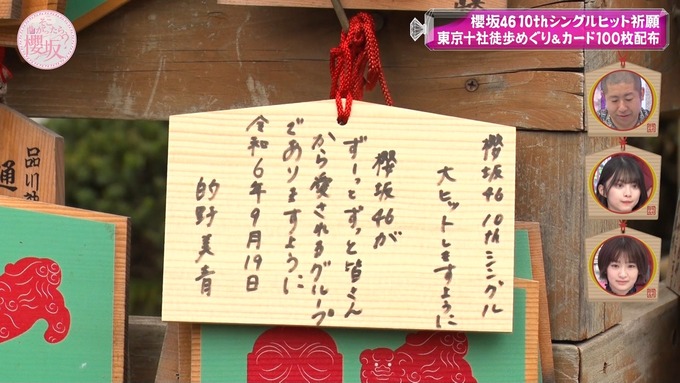 そこ曲がったら、櫻坂?
櫻坂46 10thシングルヒット祈願
東京十社徒歩めぐり&カード100枚配布
櫻坂46 10thシングル
大ヒットしますように
櫻坂46が
ずーっとずっと皆さん
から愛されるグループ
でありますように
令和6年9月19日
的野美青
品川神
通